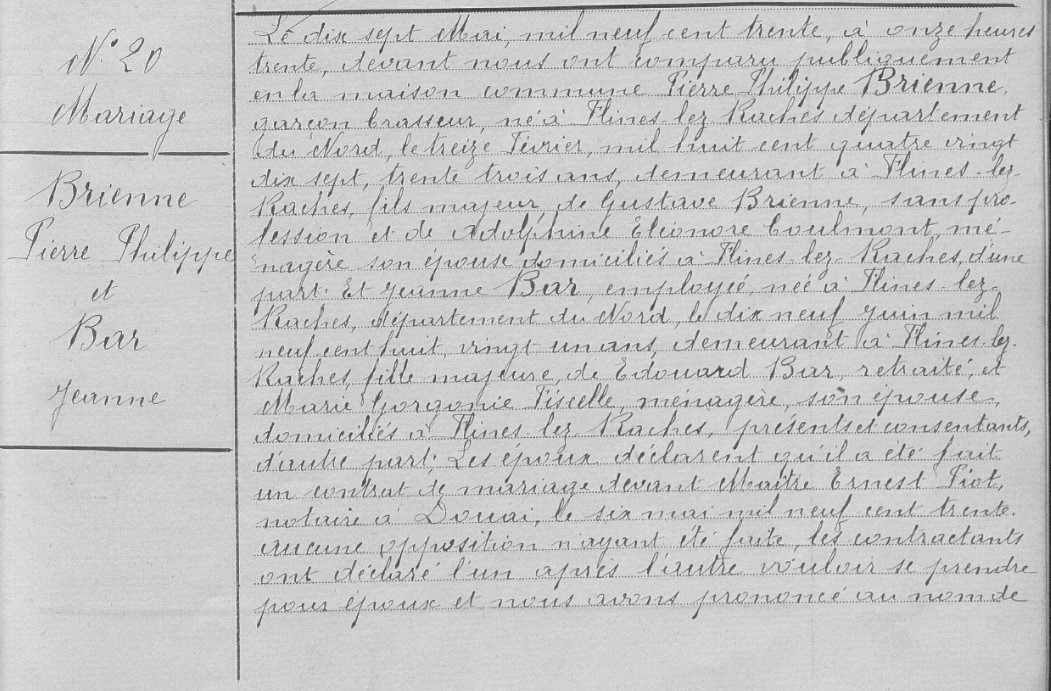 N° 20
Mariage
Brienne
Pierre Philippe
et
Bar
Jeanne
Le dix sept Mai, mil neuf cent trente, à onze heures
trente, devant nous ont comparu publiquement
en la maison commune Pierre Philippe Brienne,
garçon brasseur, né à Flines lez Raches département
du Nord, le treize Février, mil huit cent quatre vingt
dix sept, trente trois ans, demeurant à Flines-lez-
Raches, fils majeur de Gustave Brienne, sans pro-
fession et de Adolphine Eléonore Coulmont, mé-
nagère son épouse domiciliés à Flines-lez-Raches, d'une
part. Et Jeanne Bar, employée, née à Flines-lez-
Raches, département du Nord, le dix neuf Juin mil
neuf cent huit, vingt un ans, demeurant à Flines-lez-
Raches, fille majeure, de Edouard Bar, retraité, et
Marie Gorgonie Fiscelle, ménagère, son épouse,
domiciliés à Flines lez Raches, présents et consentants,
d'autre part; Les époux déclarent qu'il a été fait
un contrat de mariage devant Maître Ernest Piot,
notaire à Douai, le six mai mil neuf cent trente.
Aucune opposition n'ayant été faite, les contractants
ont déclaré l'un après l'autre vouloir se prendre
pour époux et nous avons prononcé au nom de